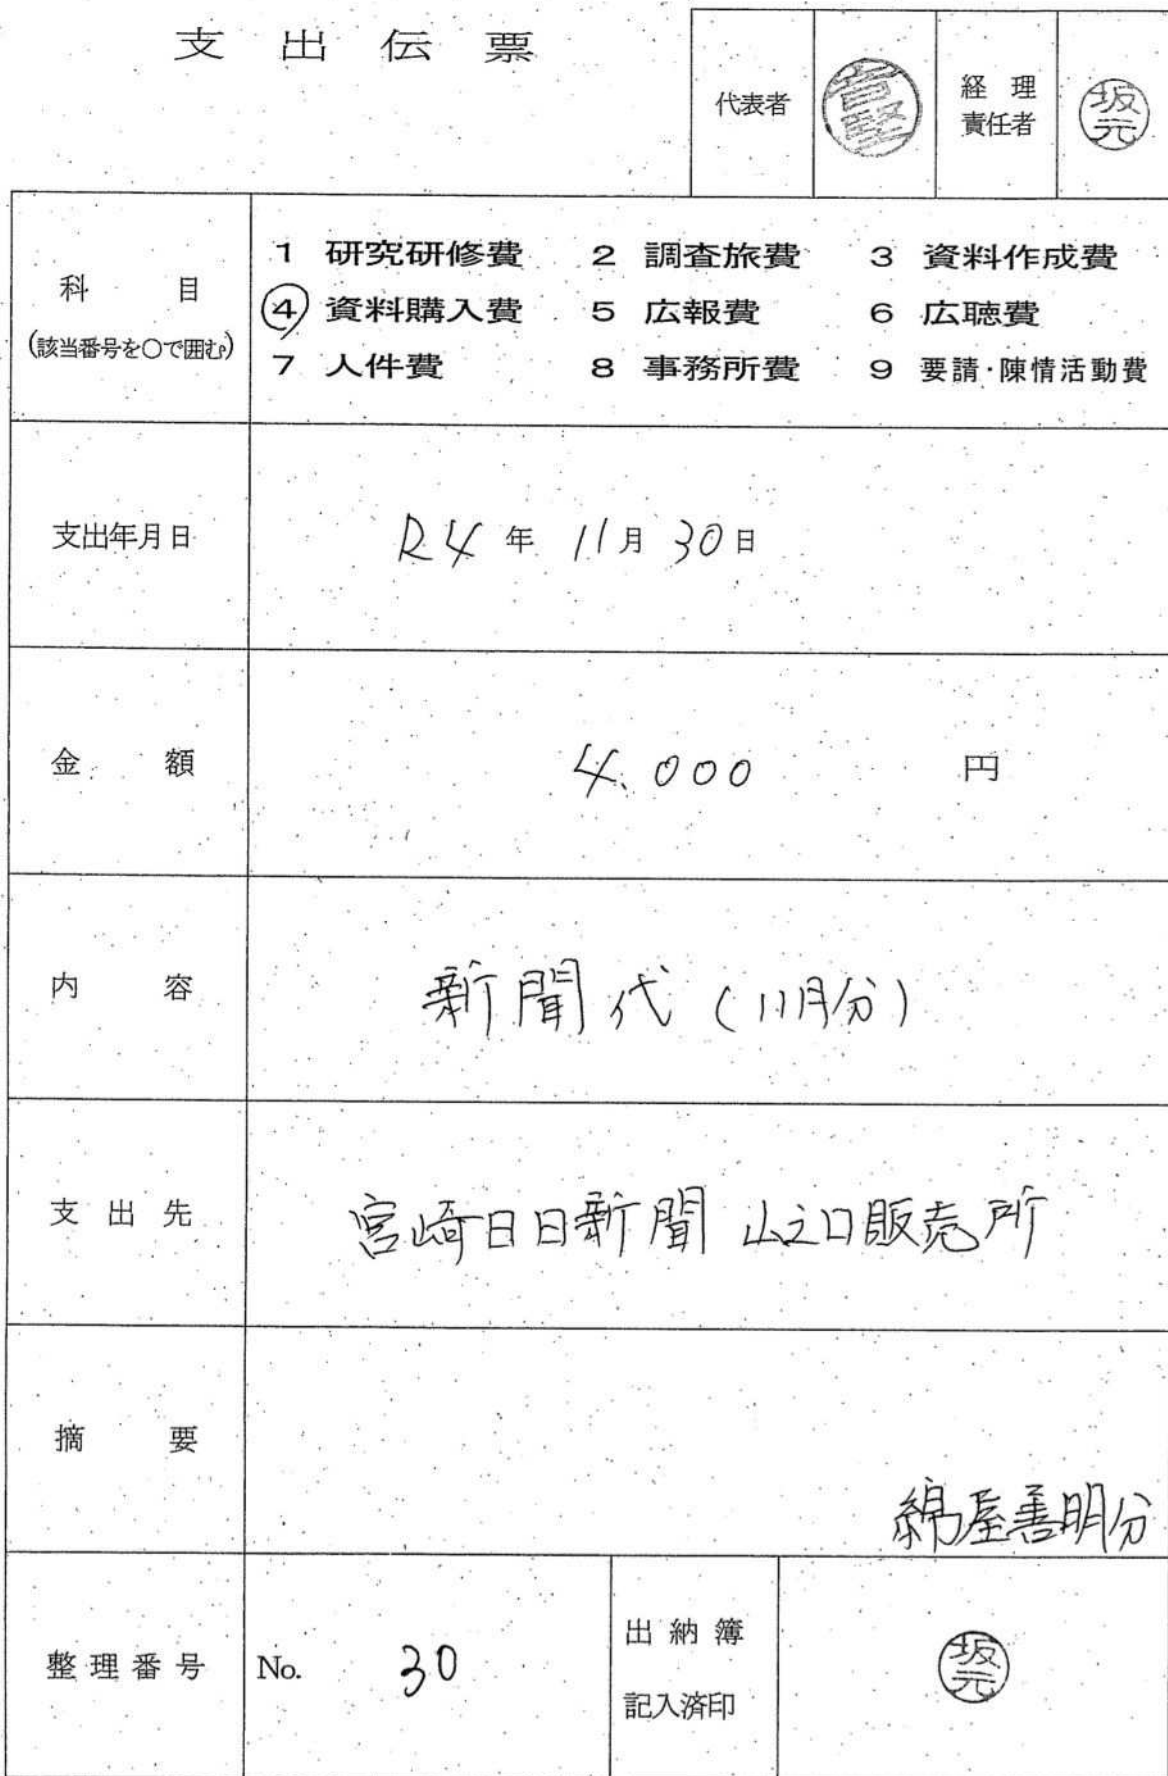 支出伝票
代表者
経理
責任者
坂元
科目
(該当番号を○で囲む)
1 研究研修費 2 調査旅費 3 資料作成費
④ 資料購入費 5 広報費 6 広聴費
7 人件費 8 事務所費 9 要請・陳情活動費
支出年月日
R4年 11月 30日
金額
4,000 円
内容
新聞代(11月分)
支出先
宮崎日日新聞 山之口販売所
摘要
綿屋善明分
整理番号
No. 30
出納簿
記入済印
坂元